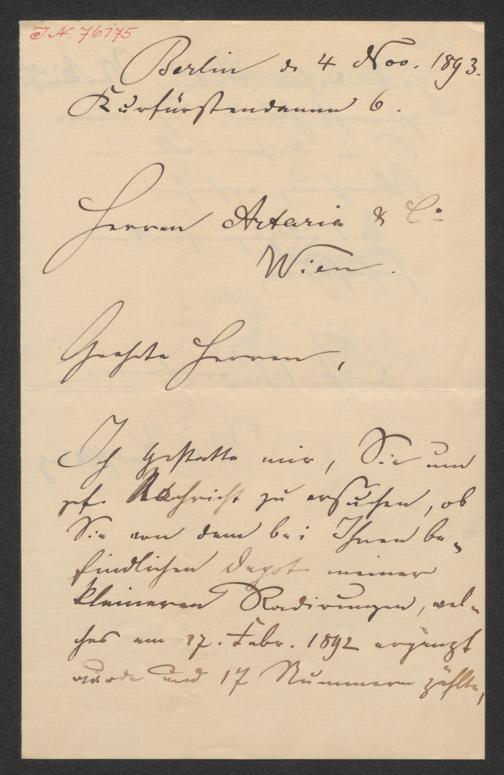 I.N. 76775
Berlin d. 4 Nov. 1893.
Kurfürstendamm 6.
Herren Artaria & Co
Wien.
Geehrte Herren,
Ich gestatte mir, Sie um
gef. Nachricht zu ersuchen, ob
Sie von dem bei Ihnen be-
findlichen Depot meiner
kleineren Radirungen, wel-
ches am 17. Febr. 1892 ergänzt
wurde und 17 Nummern zählte,